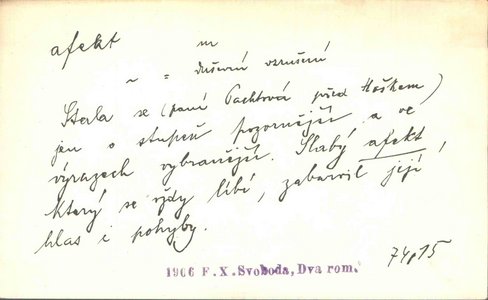 afekt m
~ = duševní vzrušení
Stala se (paní Pachtová před Haškem)
jen o stupeň pozornější a ve
výrazech vybranější. Slabý afekt,
který se vždy líbí, zabarvil její
hlas i pohyby.
74,15
1906 F. X. Svoboda, Dva rom.